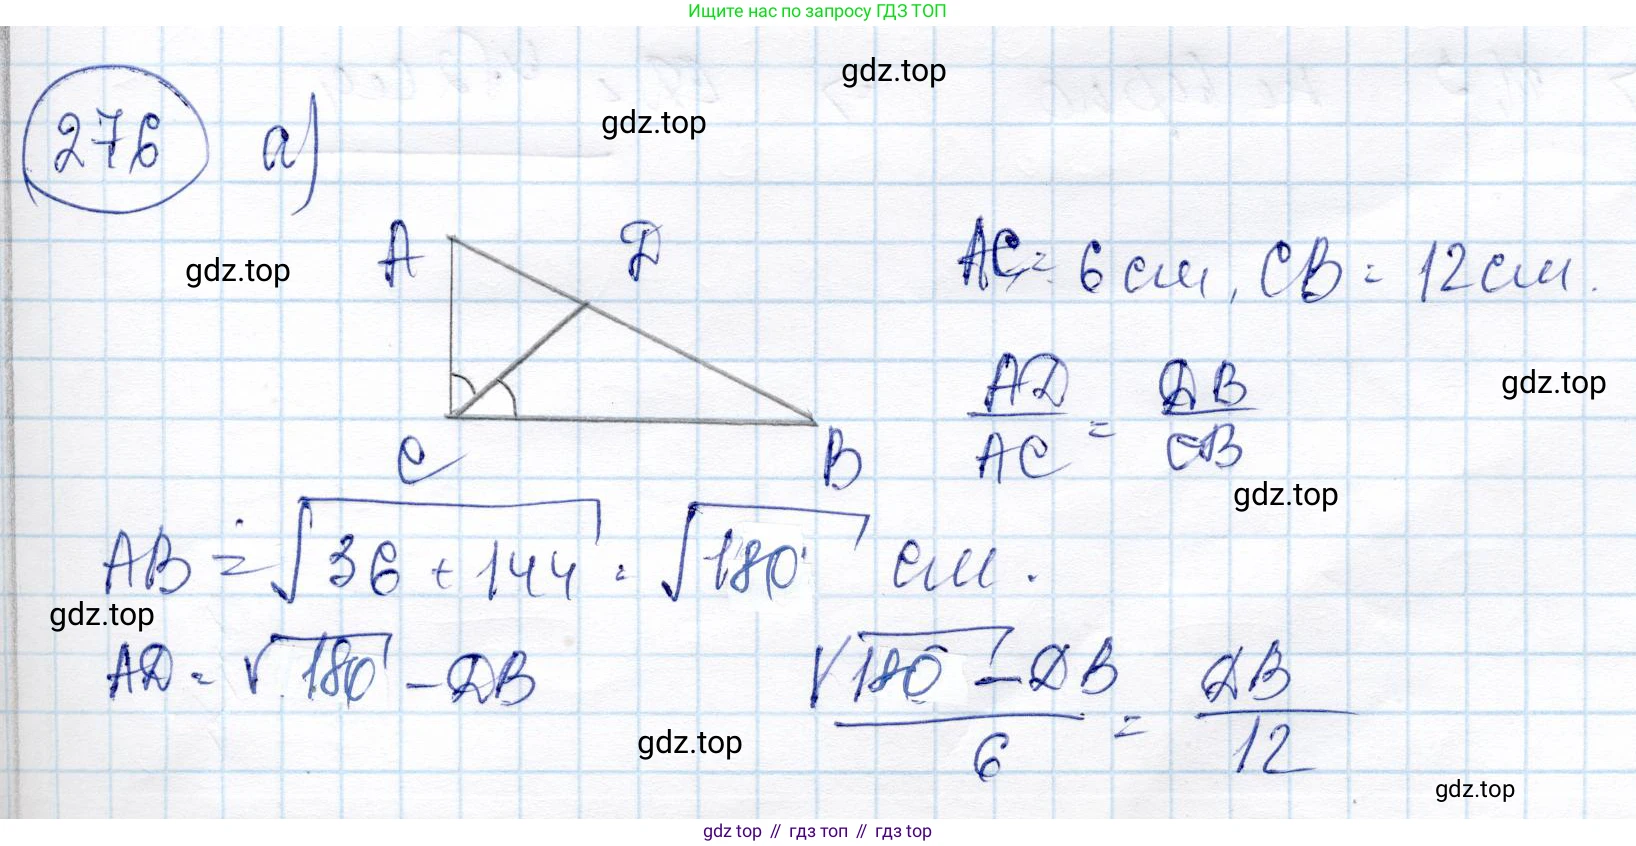 Ищите нас по запросу ГДЗ ТОП
gdz.top
gdz.top
276 а)
A D
gdz.top
AC = 6 см, CB = 12 см.
AD/AC = DB/CB
gdz.top
C B
gdz.top
AB = √36 + 144 = √180 см.
gdz.top
AD = √180 - DB
(√180 - DB)/6 = DB/12
gdz.top
gdz.top
gdz top // гдз топ // гдз top